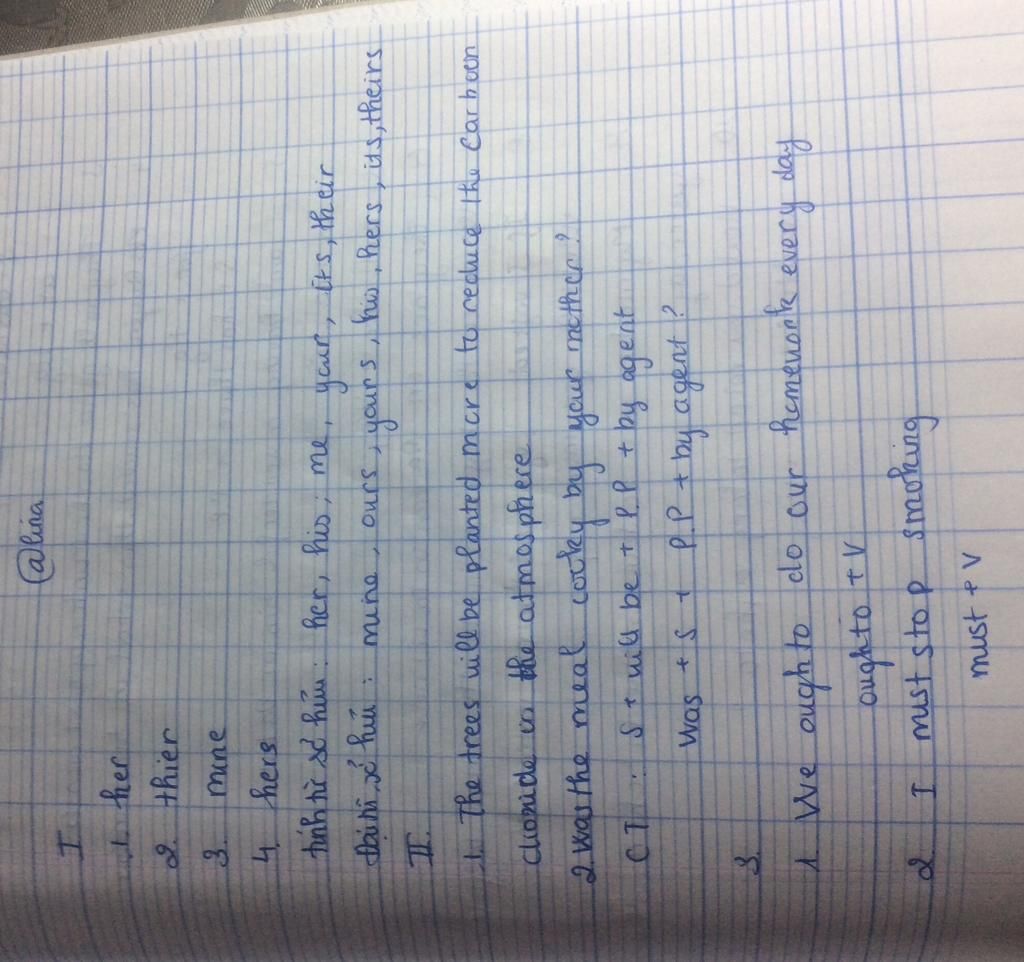 @lina
I
1. her
2. thier
3. mine
4. hers
tính từ sở hữu: her, his, me, your, its, their
đại từ sở hữu: mine, ours, yours, his, hers, its, theirs
II.
1. The trees will be planted more to reduce the carboon
dioxide in the atmosphere
2. Was the meal cooky by your mother?
CT: S + will be + P.P + by agent
Was + S + P.P + by agent?
3.
1. We ought to do our homework every day
ought to + V
2. I must stop smoking
must + V